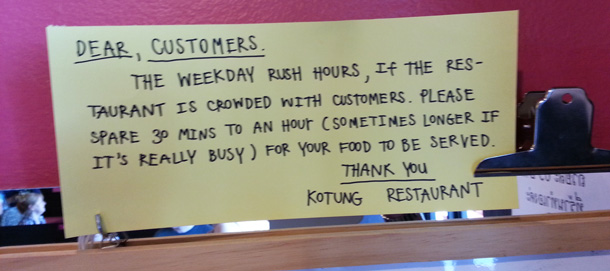 DEAR, CUSTOMERS.
THE WEEKDAY RUSH HOURS, If THE RES-
TAURANT IS CROWDED WITH CUSTOMERS. PLEASE
SPARE 30 MINS TO AN HOUR (SOMETIMES LONGER IF
IT'S REALLY BUSY) FOR YOUR FOOD TO BE SERVED.
THANK YOU
KOTUNG RESTAURANT